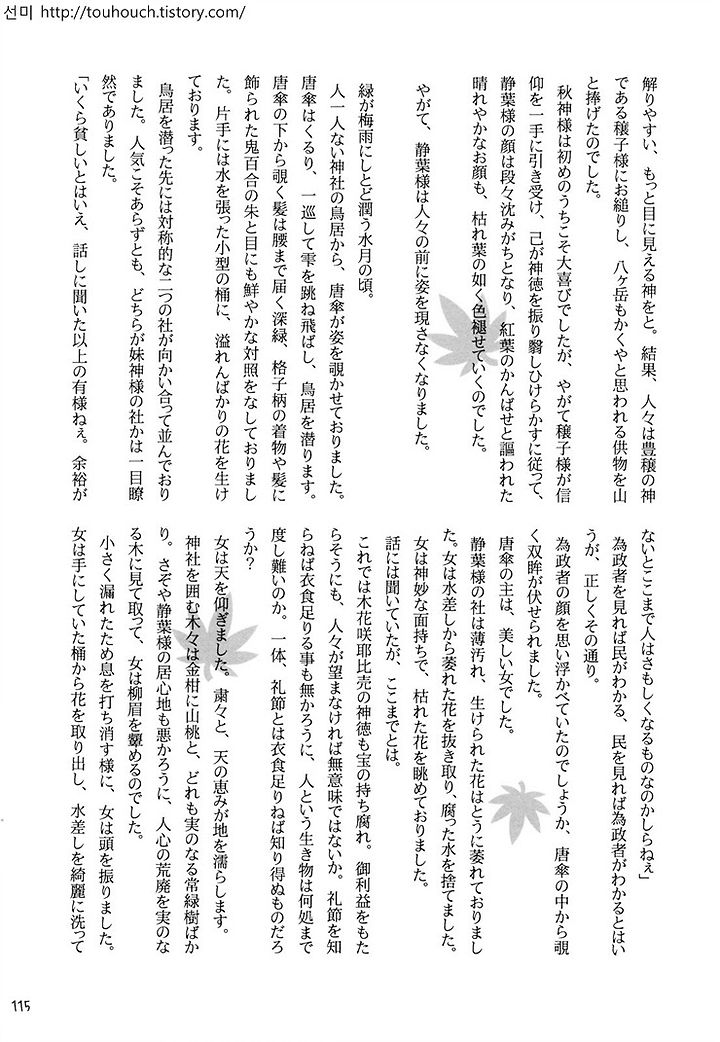 선미 http://touhouch.tistory.com/
解りやすい、もっと目に見える神をと。結果、人々は豊穣の神
である穣子様にお縋りし、八ヶ岳もかくやと思われる供物を山
と捧げたのでした。
秋神様は初めのうちこそ大喜びでしたが、やがて穣子様が信
仰を一手に引き受け、己が神徳を振り翳しひけらかすに従って、
静葉様の顔は段々沈みがちとなり、紅葉のかんばせと謳われた
晴れやかなお顔も、枯れ葉の如く色褪せていくのでした。
やがて、静葉様は人々の前に姿を現さなくなりました。
緑が梅雨にしとど潤う水月の頃。
人一人ない神社の鳥居から、唐傘が姿を覗かせておりました。
唐傘はくるり、一巡して雫を跳ね飛ばし、鳥居を潜ります。
唐傘の下から覗く髪は腰まで届く深緑、格子柄の着物や髪に
飾られた鬼百合の朱と目にも鮮やかな対照をなしておりまし
た。片手には水を張った小型の桶に、溢れんばかりの花を生け
ております。
鳥居を潜った先には対称的な二つの社が向かい合って並んでおり
ました。人気こそあらずとも、どちらが妹神様の社かは一目瞭
然でありました。
「いくら貧しいとはいえ、話しに聞いた以上の有様ねぇ。余裕が
ないとここまで人はさもしくなるものなのかしらねぇ」
為政者を見れば民がわかる、民を見れば為政者がわかるとはい
うが、正しくその通り。
為政者の顔を思い浮かべていたのでしょうか、唐傘の中から覗
く双眸が伏せられました。
唐傘の主は、美しい女でした。
静葉様の社は薄汚れ、生けられた花はとうに萎れておりまし
た。女は水差しから萎れた花を抜き取り、腐った水を捨てました。
女は神妙な面持ちで、枯れた花を眺めておりました。
話には聞いていたが、ここまでとは。
これでは木花咲耶比売の神徳も宝の持ち腐れ。御利益をもた
らそうにも、人々が望まなければ無意味ではないか。礼節を知
らねば衣食足りる事も無かろうに、人という生き物は何処まで
度し難いのか。一体、礼節とは衣食足りねば知り得ぬものだろ
うか?
女は天を仰ぎました。粛々と、天の恵みが地を濡らします。
神社を囲む木々は金柑に山桃と、どれも実のなる常緑樹ばか
り。さぞや静葉様の居心地も悪かろうに、人心の荒廃を実のな
る木に見て取って、女は柳眉を顰めるのでした。
小さく漏れたため息を打ち消す様に、女は頭を振りました。
女は手にしていた桶から花を取り出し、水差しを綺麗に洗って
115